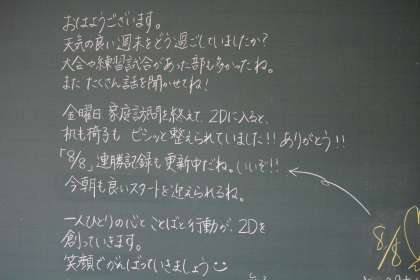 おはようございます。
天気の良い週末をどう過ごしていましたか?
大会や練習試合があった部も多かったね。
また たくさん話を聞かせてね!
金曜日 家庭訪問を終えて、2Dに入ると、
机も椅子も ビシッと整えられていました!! ありがとう!!
「8/8」連勝記録も更新中だね。いいぞ!!
今朝も良いスタートを迎えられるね。
一人ひとりの心と ことばと行動が、2Dを
創っていきます。
笑顔でがんばっていきましょう
8/8